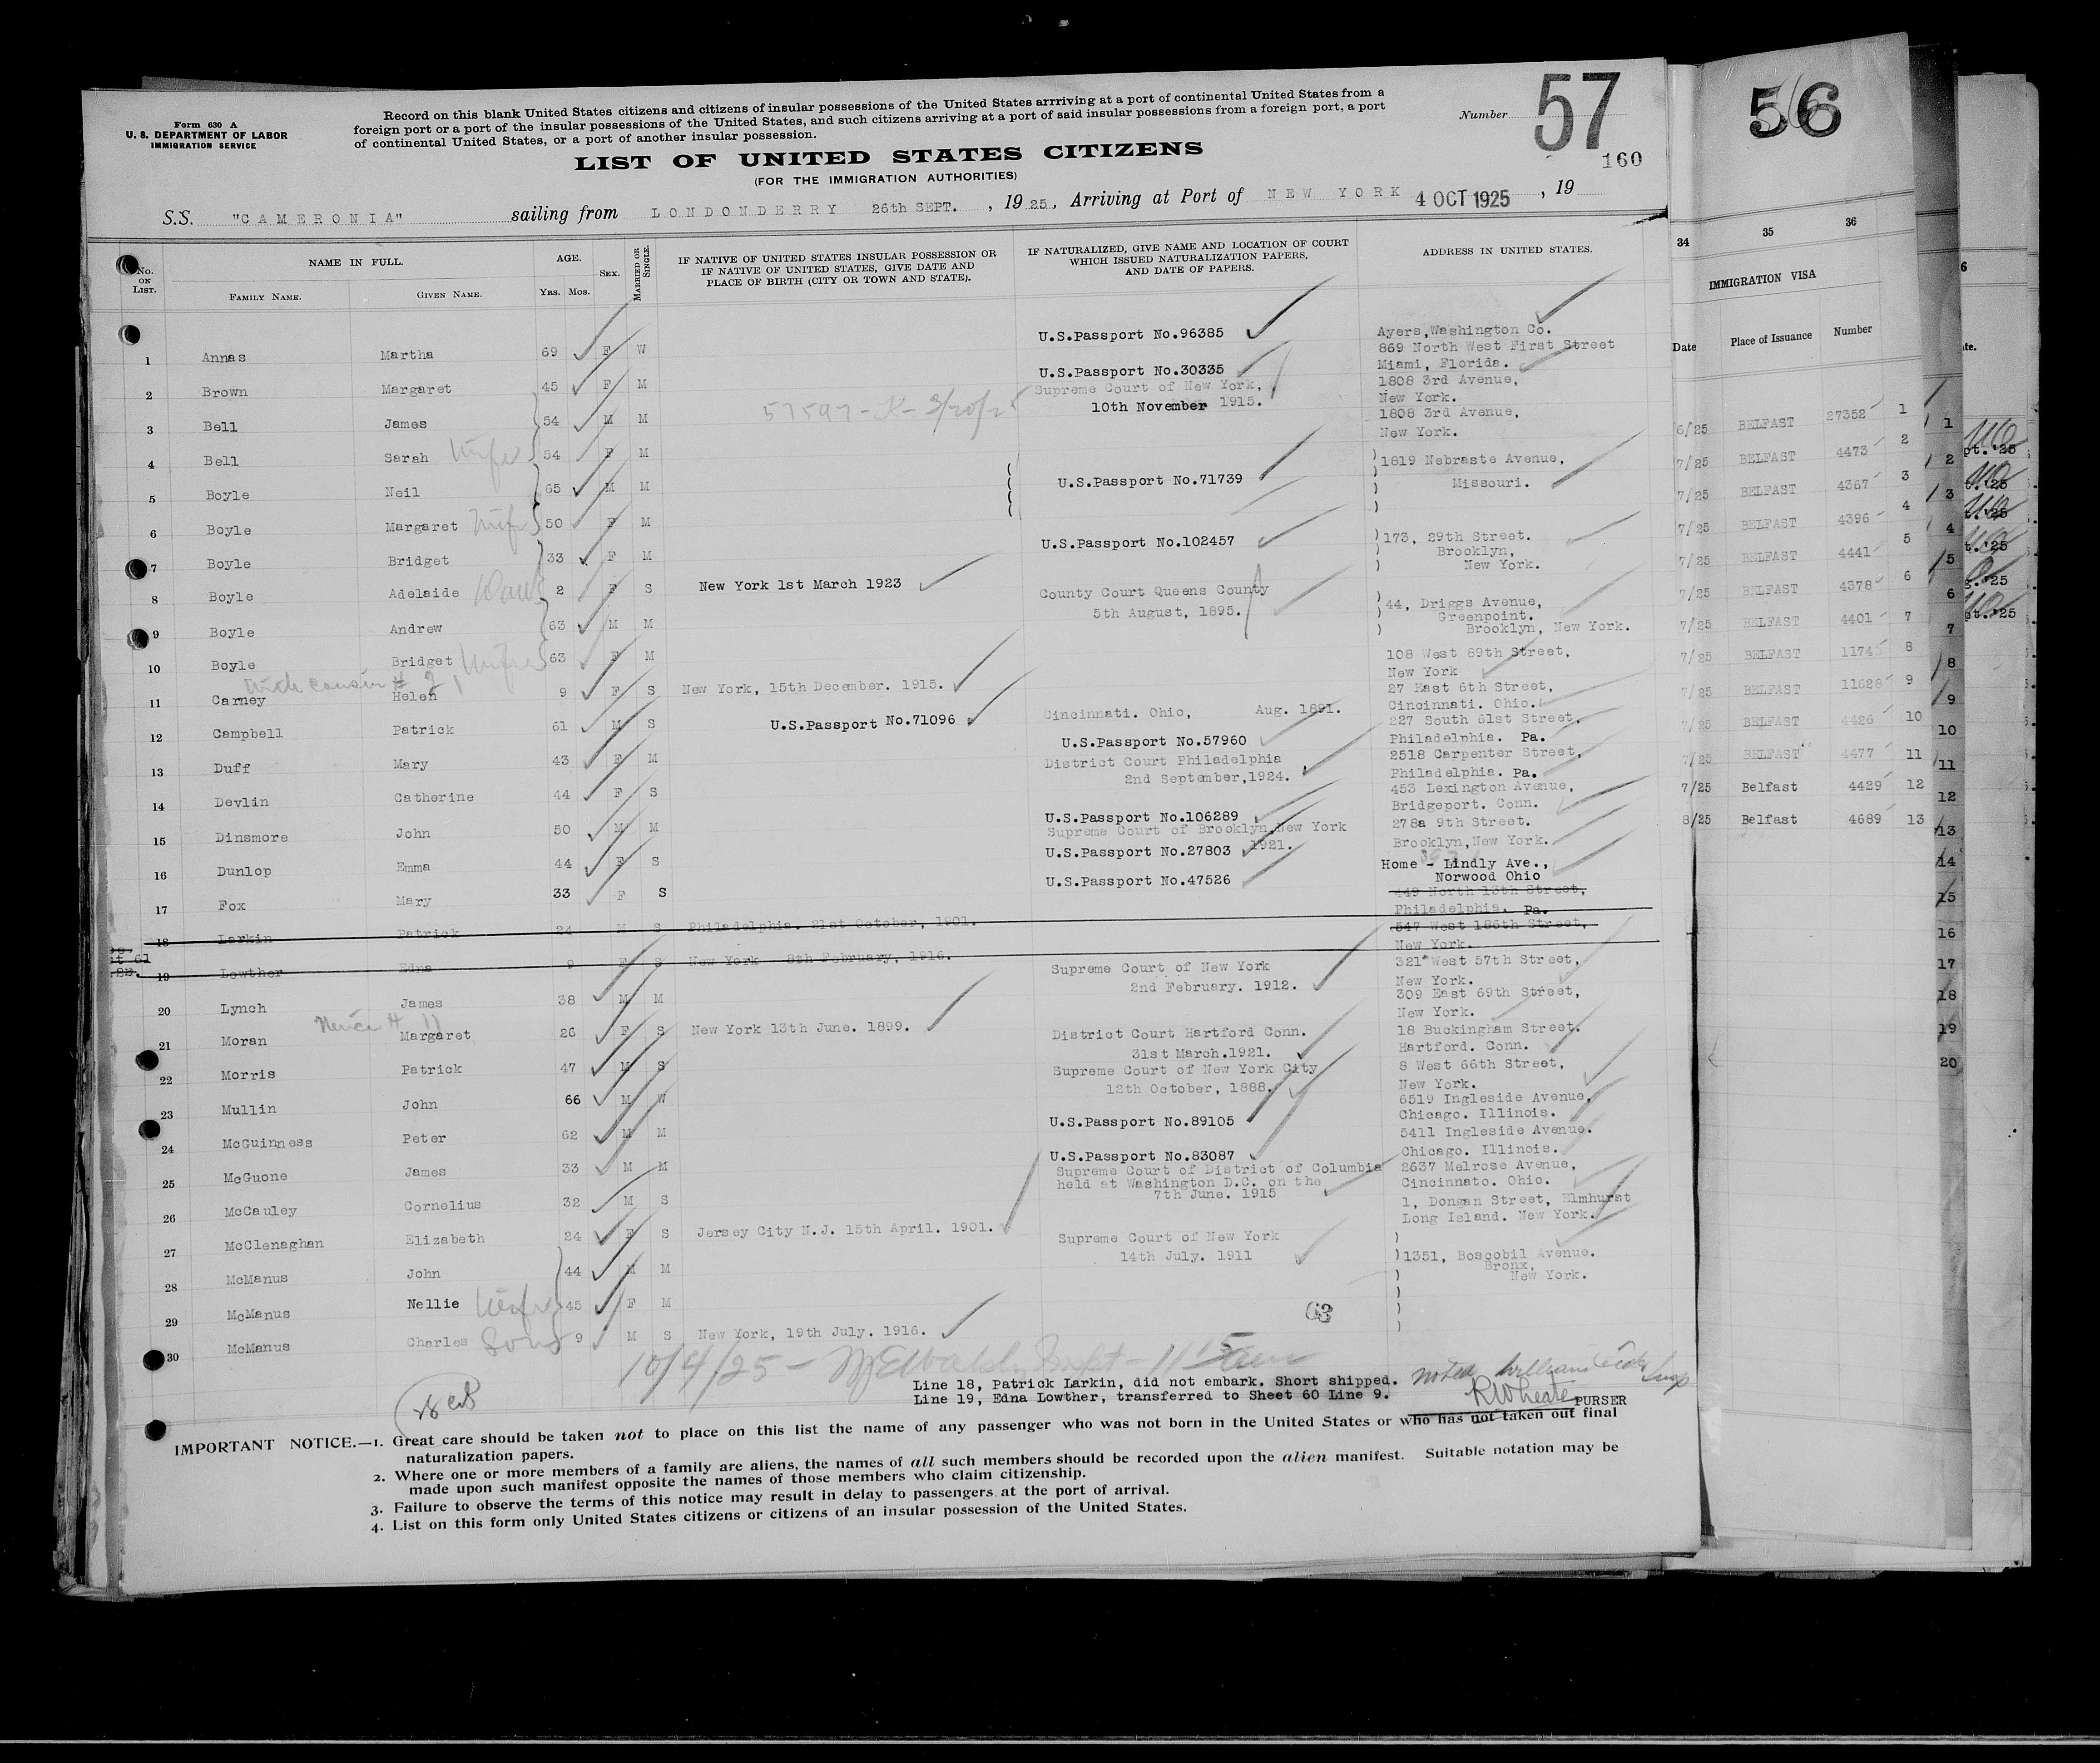 Form 630 A
U. S. DEPARTMENT OF LABOR
IMMIGRATION SERVICE
Record on this blank United States citizens and citizens of insular possessions of the United States arrriving at a port of continental United States from a
foreign port or a port of the insular possessions of the United States, and such citizens arriving at a port of said insular possessions from a foreign port, a port
of continental United States, or a port of another insular possession.
Number 57
160
LIST OF UNITED STATES CITIZENS
(FOR THE IMMIGRATION AUTHORITIES)
S.S. "CAMERONIA" sailing from LONDONDERRY 26th SEPT. , 19 25, Arriving at Port of NEW YORK 4 OCT 1925 , 19
No. ON LIST.
NAME IN FULL.
FAMILY NAME.
GIVEN NAME.
AGE.
YRS. MOS.
SEX.
MARRIED OR SINGLE.
IF NATIVE OF UNITED STATES INSULAR POSSESSION OR
IF NATIVE OF UNITED STATES, GIVE DATE AND
PLACE OF BIRTH (CITY OR TOWN AND STATE).
IF NATURALIZED, GIVE NAME AND LOCATION OF COURT
WHICH ISSUED NATURALIZATION PAPERS,
AND DATE OF PAPERS.
ADDRESS IN UNITED STATES.
1 Annas Martha 69 F W U.S.Passport No.96385 Ayers,Washington Co.
869 North West First Street
2 Brown Margaret 45 F M U.S.Passport No.30335 Miami, Florida.
3 Bell James 54 M M Supreme Court of New York, 1808 3rd Avenue,
10th November 1915. New York.
4 Bell Sarah Wife 54 F M 1808 3rd Avenue,
New York.
5 Boyle Neil 65 M M U.S.Passport No.71739 1819 Nebraste Avenue,
Missouri.
6 Boyle Margaret Wife 50 F M
7 Boyle Bridget 33 F M U.S.Passport No.102457 173, 29th Street.
Brooklyn,
New York.
8 Boyle Adelaide 2 F S New York 1st March 1923
9 Boyle Andrew 63 M M County Court Queens County 44, Driggs Avenue,
5th August, 1895. Greenpoint.
Brooklyn, New York.
10 Boyle Bridget Wife 63 F M
with cousin # 21
11 Carney Helen 9 F S New York, 15th December. 1915. 108 West 89th Street,
New York
12 Campbell Patrick 61 M S U.S.Passport No.71096 Cincinnati. Ohio, Aug. 1891. 27 East 6th Street,
Cincinnati. Ohio.
13 Duff Mary 43 F M U.S.Passport No.57960 227 South 61st Street,
Philadelphia. Pa.
14 Devlin Catherine 44 F S District Court Philadelphia 2518 Carpenter Street,
2nd September,1924. Philadelphia. Pa.
15 Dinsmore John 50 M M U.S.Passport No.106289 453 Lexington Avenue,
Bridgeport. Conn.
16 Dunlop Emma 44 F S Supreme Court of Brooklyn,New York 278a 9th Street.
U.S.Passport No.27803 1921. Brooklyn,New York.
17 Fox Mary 33 F S U.S.Passport No.47526 Home - Lindly Ave.,
Norwood Ohio
18 Larkin Patrick 24 M S Philadelphia. 21st October, 1901. 449 North 13th Street,
Philadelphia. Pa.
19 Lowther Edna 9 F S New York 8th February, 1916. 547 West 186th Street,
New York.
20 Lynch James 38 M M Supreme Court of New York 321 West 57th Street,
2nd February. 1912. New York.
Niece # 11
21 Moran Margaret 26 F S New York 13th June. 1899. 309 East 69th Street,
New York.
22 Morris Patrick 47 M S District Court Hartford Conn. 18 Buckingham Street.
31st March.1921. Hartford. Conn.
23 Mullin John 66 M W Supreme Court of New York City 8 West 66th Street,
12th October, 1888. New York.
24 McGuinness Peter 62 M M U.S.Passport No.89105 6519 Ingleside Avenue,
Chicago. Illinois.
25 McGuone James 33 M M U.S.Passport No.83087 5411 Ingleside Avenue.
Chicago. Illinois.
26 McCauley Cornelius 32 M S Supreme Court of District of Columbia 2637 Melrose Avenue,
held at Washington D.C. on the Cincinnato. Ohio.
7th June. 1915
27 McClenaghan Elizabeth 24 F S Jersey City N.J. 15th April. 1901. 1, Dongan Street, Elmhurst
Long Island. New York.
28 McManus John 44 M M Supreme Court of New York 1351, Boscobil Avenue.
14th July. 1911 Bronx,
New York.
29 McManus Nellie Wife 45 F M
30 McManus Charles Son 9 M S New York, 19th July. 1916.
63
10/4/25
Line 18, Patrick Larkin, did not embark. Short shipped.
Line 19, Edna Lowther, transferred to Sheet 60 Line 9.
noted
PURSER
IMPORTANT NOTICE.—1. Great care should be taken not to place on this list the name of any passenger who was not born in the United States or who has not taken out final
naturalization papers.
2. Where one or more members of a family are aliens, the names of all such members should be recorded upon the alien manifest. Suitable notation may be
made upon such manifest opposite the names of those members who claim citizenship.
3. Failure to observe the terms of this notice may result in delay to passengers at the port of arrival.
4. List on this form only United States citizens or citizens of an insular possession of the United States.
56
34 35 36
IMMIGRATION VISA
Date Place of Issuance Number
6/25 BELFAST 27352 1
7/25 BELFAST 4473 2
7/25 BELFAST 4367 3
7/25 BELFAST 4396 4
7/25 BELFAST 4441 5
7/25 BELFAST 4378 6
7/25 BELFAST 4401 7
7/25 BELFAST 1174 8
7/25 BELFAST 11628 9
7/25 BELFAST 4426 10
7/25 BELFAST 4477 11
7/25 Belfast 4429 12
8/25 Belfast 4689 13
1
2
3
4
5
6
7
8
9
10
11
12
13
14
15
16
17
18
19
20